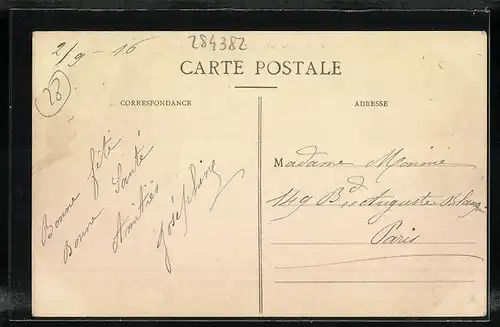 2/9-16
284382
28
CARTE POSTALE
CORRESPONDANCE
ADRESSE
Bonne fête
Bonne Santé
Amitiés
Joséphine
Madame
149 Bd Auguste
Paris